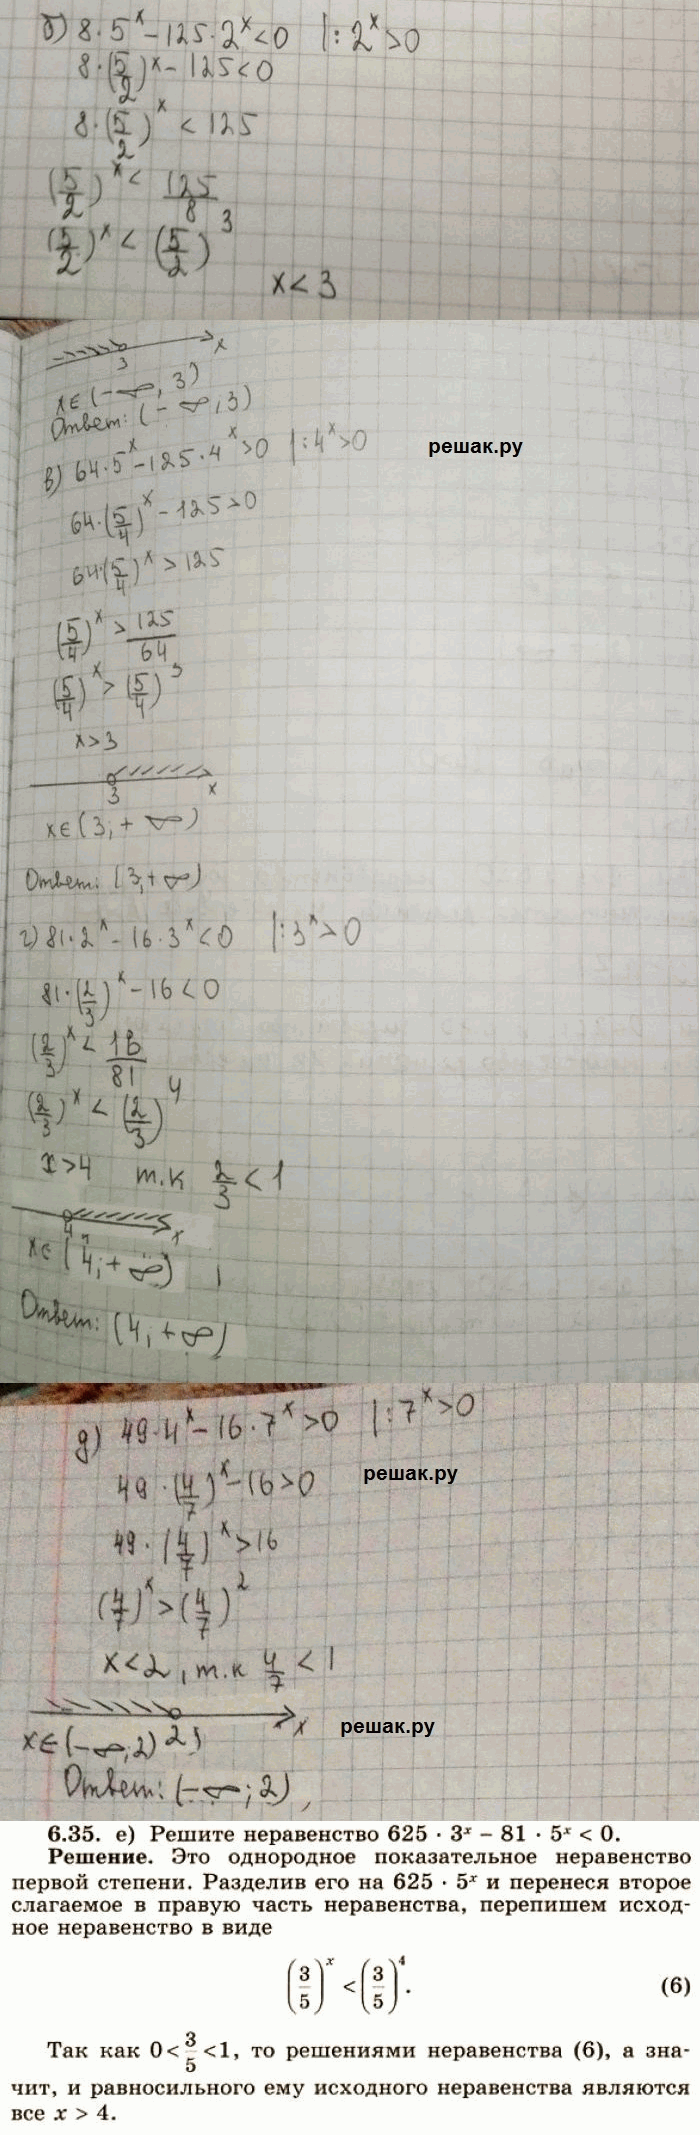 б) 8·5^x − 125·2^x < 0 |: 2^x > 0
8·(5/2)^x − 125 < 0
8·(5/2)^x < 125
(5/2)^x < 125/8
(5/2)^x < (5/2)^3
x < 3
3 x
x∈(−∞, 3)
Ответ: (−∞, 3)
решак.ру
в) 64·5^x − 125·4^x > 0 |: 4^x > 0
64·(5/4)^x − 125 > 0
64·(5/4)^x > 125
(5/4)^x > 125/64
(5/4)^x > (5/4)^3
x > 3
3 x
x∈(3; +∞)
Ответ: (3; +∞)
г) 81·2^x − 16·3^x < 0 |: 3^x > 0
81·(2/3)^x − 16 < 0
(2/3)^x < 16/81
(2/3)^x < (2/3)^4
x > 4 т.к 2/3 < 1
4 x
x∈(4; +∞)
Ответ: (4; +∞)
д) 49·4^x − 16·7^x > 0 |: 7^x > 0
решак.ру
49·(4/7)^x − 16 > 0
49·(4/7)^x > 16
(4/7)^x > (4/7)^2
x < 2, т.к 4/7 < 1
x
решак.ру
x∈(−∞; 2) 2)
Ответ: (−∞; 2)
6.35. е) Решите неравенство 625 · 3^x − 81 · 5^x < 0.
Решение. Это однородное показательное неравенство
первой степени. Разделив его на 625 · 5^x и перенеся второе
слагаемое в правую часть неравенства, перепишем исход-
ное неравенство в виде
(3/5)^x < (3/5)^4. (6)
Так как 0 < 3/5 < 1, то решениями неравенства (6), а зна-
чит, и равносильного ему исходного неравенства являются
все x > 4.